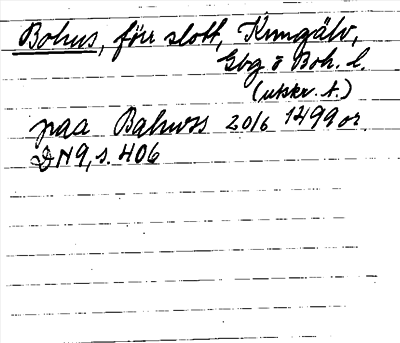 Bohus, förr slott, Kungälv,
Gbg o Boh. l.
(utskr. A.)
paa Bahuss 20/6 1499 or.
DN 9, s. 406